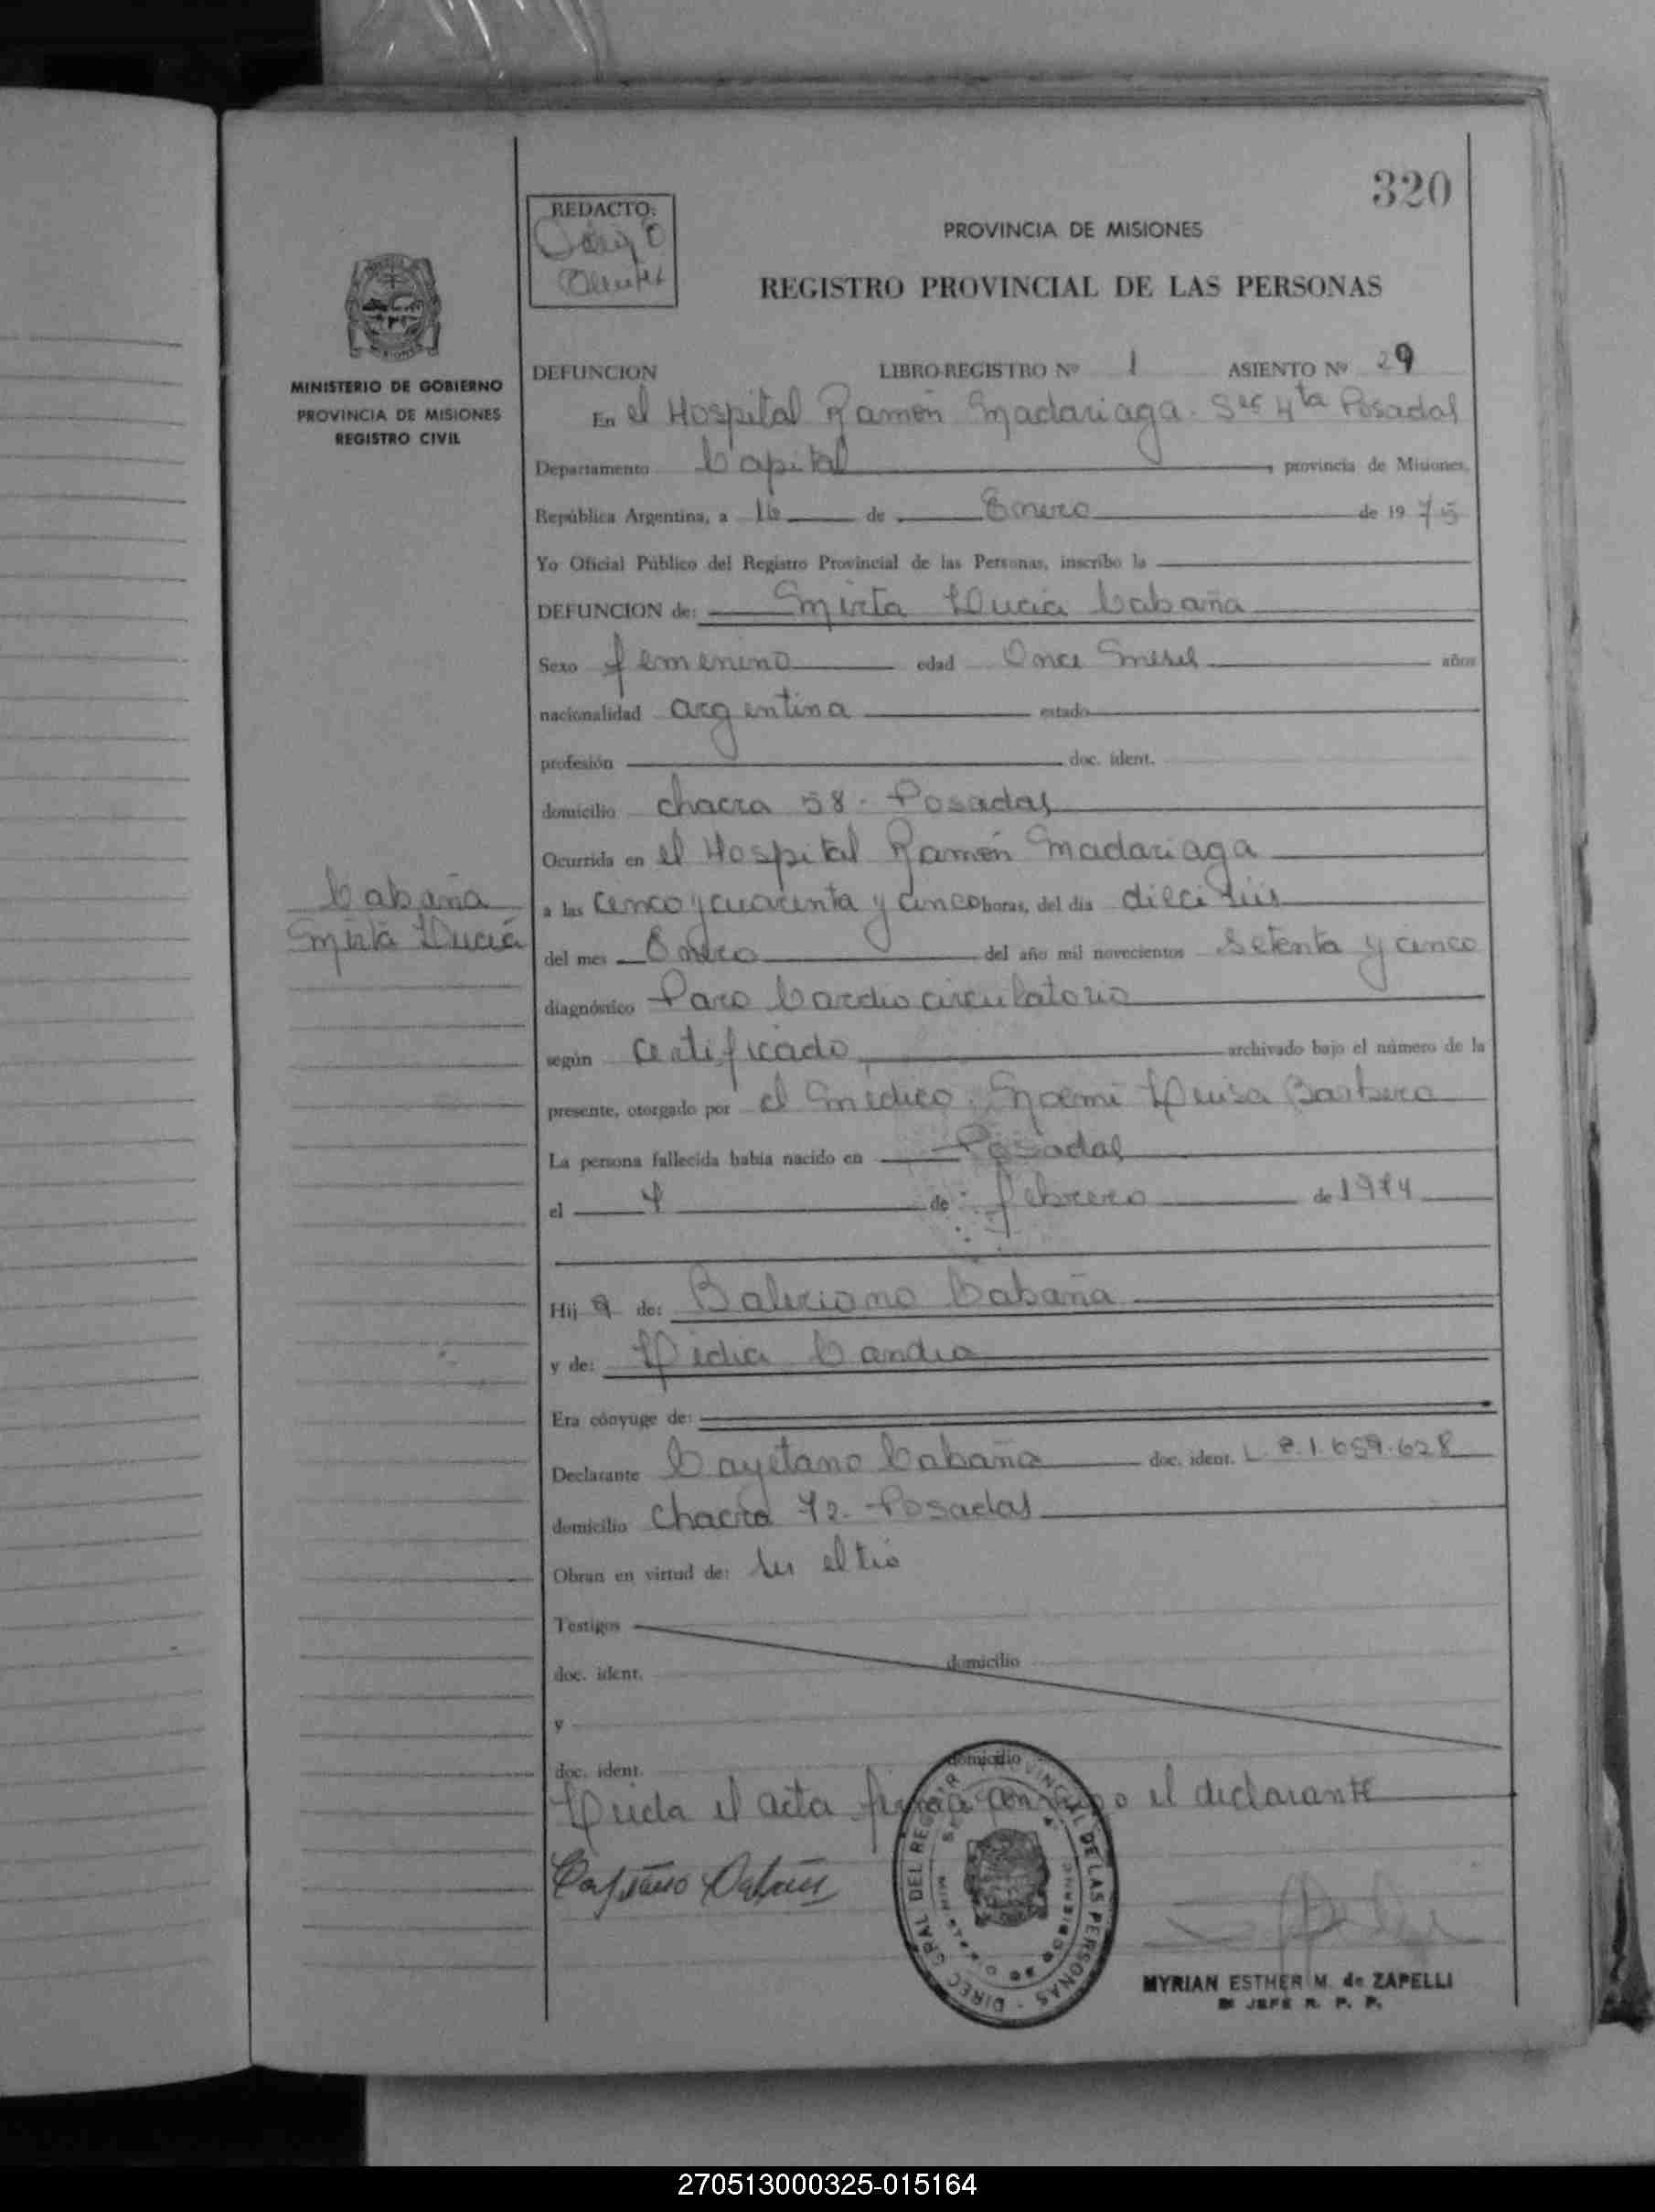 320
REDACTO:
PROVINCIA DE MISIONES
REGISTRO PROVINCIAL DE LAS PERSONAS
MINISTERIO DE GOBIERNO
PROVINCIA DE MISIONES
REGISTRO CIVIL
DEFUNCION LIBRO-REGISTRO Nº 1 ASIENTO Nº 29
En el Hospital Ramón Madariaga. Sec 4ta Posadas
Departamento Capital, provincia de Misiones,
República Argentina, a 16 de Enero de 1975
Yo Oficial Público del Registro Provincial de las Personas, inscribo la
DEFUNCION de: Mirta Lucia Cabaña
Sexo femenino edad Once Meses años
nacionalidad argentina estado
profesión doc. ident.
domicilio chacra 58 - Posadas
Ocurrida en el Hospital Ramón Madariaga
Cabaña
Mirta Lucia
a las cinco y cuarenta y cinco horas, del día dieciseis
del mes Enero del año mil novecientos setenta y cinco
diagnóstico Paro Cardio circulatorio
según certificado archivado bajo el número de la
presente, otorgado por el Medico. Noemi Luisa Barbero
La persona fallecida había nacido en Posadas
el 4 de febrero de 1974
Hij a de: Baleriano Cabaña
y de: Lidia Candia
Era cónyuge de:
Declarante Cayetano Cabaña doc. ident. L.E.1.659.628
domicilio Chacra 72 - Posadas
Obran en virtud de: ser el tio
Testigos
doc. ident. domicilio
y
doc. ident. domicilio
Leida el acta firma conmigo el declarante
Cayetano Cabaña
DIREC. GRAL DEL REGISTR. PROVINCIAL DE LAS PERSONAS
MYRIAN ESTHER M. de ZAPELLI
JEFE R. P. P.
270513000325-015164